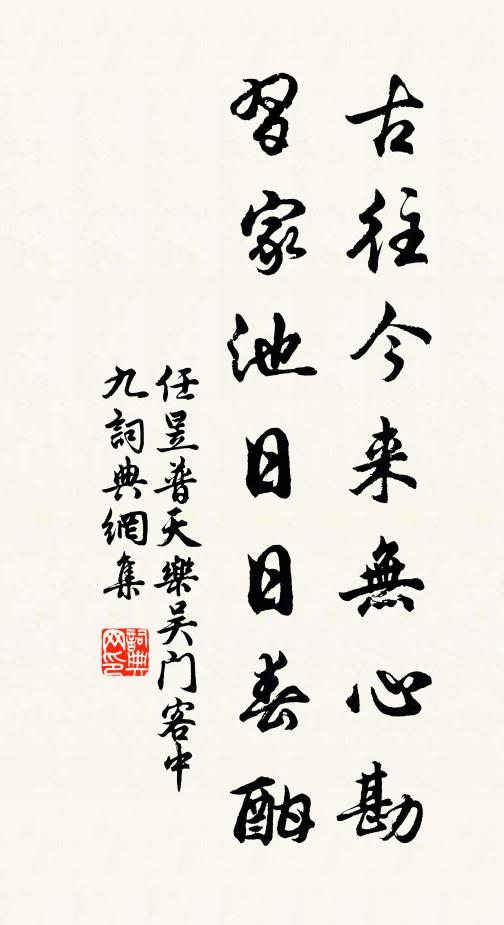 古往今来無心勘
習家池日日春酣
任昱普天樂吴门客中
九詞典網集
詞典网印